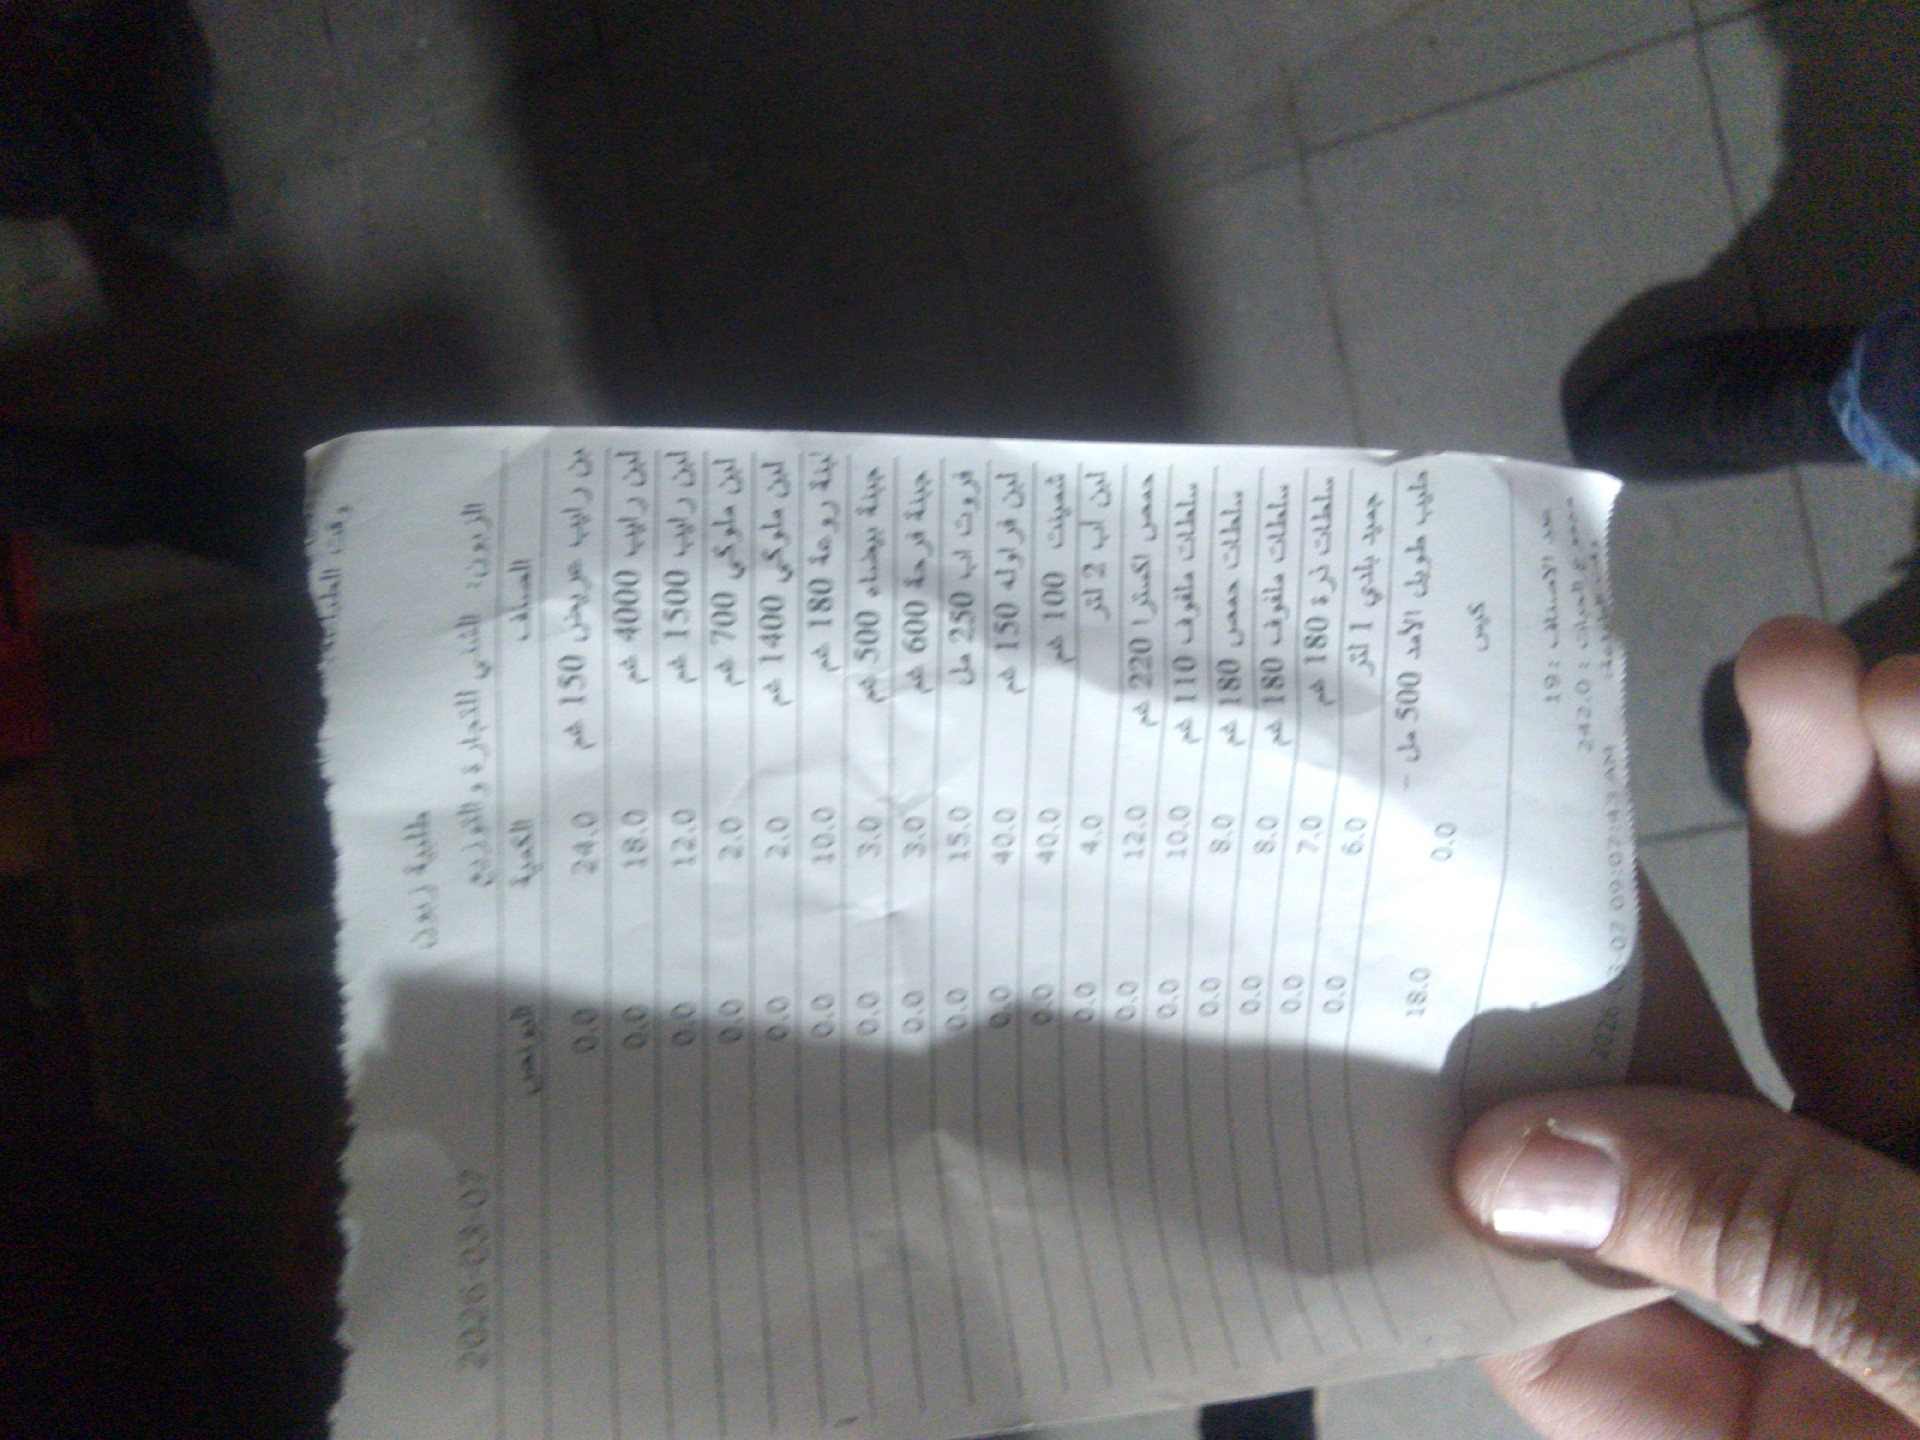 طلبية زبون
الزبون: المثنى للتجارة والتوزيع 2026-03-07
الصنف الكمية البونص
لبن رايب عريض 150 غم 24.0 0.0
لبن رايب 4000 غم 18.0 0.0
لبن رايب 1500 غم 12.0 0.0
لبن ملوكي 700 غم 2.0 0.0
لبن ملوكي 1400 غم 2.0 0.0
لبنة روعة 180 غم 10.0 0.0
جبنة بيضاء 500 غم 3.0 0.0
جبنة فرحة 600 غم 3.0 0.0
فروت اب 250 مل 15.0 0.0
لبن فراوله 150 غم 40.0 0.0
شمينت 100 غم 40.0 0.0
لبن اب 2 لتر 4.0 0.0
حمص اكسترا 220 غم 12.0 0.0
سلطات ملفوف 110 غم 10.0 0.0
سلطات حمص 180 غم 8.0 0.0
سلطات ملفوف 180 غم 8.0 0.0
سلطات ذرة 180 غم 7.0 0.0
جميد بلدي 1 لتر 6.0 0.0
حليب طويل الأمد 500 مل - 0.0 18.0
كيس
عدد الأصناف : 19
مجموع الحبات : 242.0
09:07:43 AM